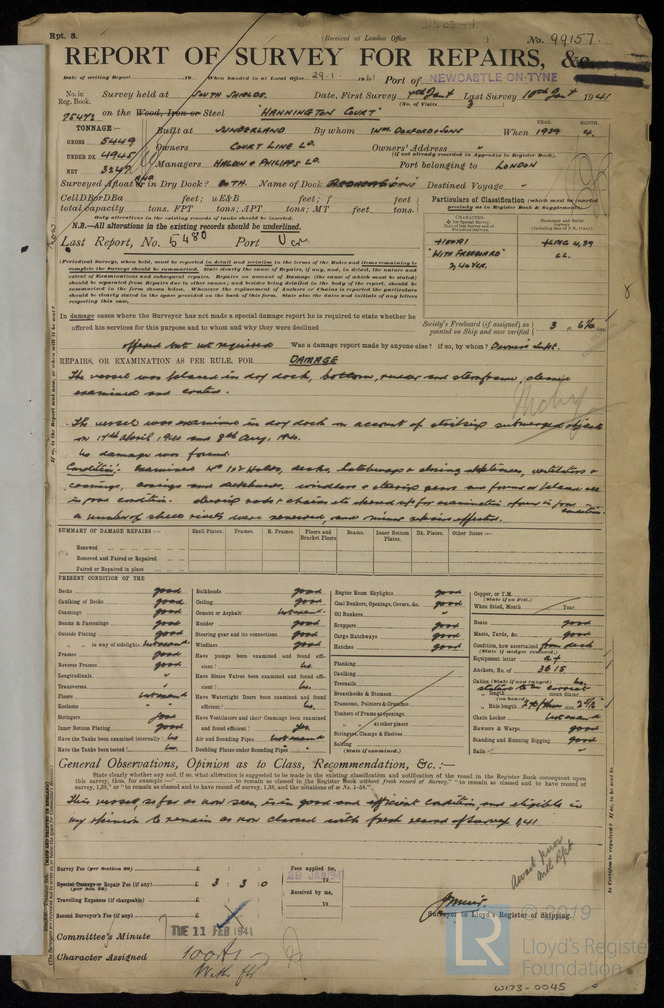 Rpt. 8.
(Received at London Office
No. 99157.
REPORT OF SURVEY FOR REPAIRS, &c.
Date of writing Report 19 When handed in at Local Office 29.1. 1941 Port of NEWCASTLE-ON-TYNE
No. in Reg. Book. Survey held at SOUTH SHIELDS. Date, First Survey 7th Jan'y Last Survey 10th Jan'y 1941
(No. of Visits 3
75473 on the Wood, Iron or Steel "HANNINGTON COURT"
TONNAGE:—
GROSS 5449
UNDER DK. 4945
NET 3247
Built at SUNDERLAND By whom Wm DOXFORD & SONS When 1939 4.
YEAR. MONTH.
Owners COURT LINE LD. Owners' Address
(If not already recorded in Appendix to Register Book).
Managers HALDIN & PHILIPPS LD. Port belonging to LONDON
Surveyed Afloat & in Dry Dock? BOTH. Name of Dock Destined Voyage
CellDBorDBa feet; uE&B feet; f feet
total capacity tons. FPT tons; APT tons; MT feet tons
Only alterations in the existing records of tanks should be inserted.
N.B.—All alterations in the existing records should be underlined.
Last Report, No. 5480 Port Vcr
Particulars of Classification (which must be inserted precisely as in Register Book & Supplement).
CHARACTER.
+100A1
"WITH FREEBOARD"
3,40 Ver.
+LMC 4,39
CL.
(Periodical Surveys, when held, must be reported in detail and seriatim in the terms of the Rules and items remaining to complete the Surveys should be summarized. State clearly the cause of Repairs, if any, and, in detail, the nature and extent of Examinations and subsequent repairs. Repairs on account of Damage (the cause of which must be stated) should be separated from Repairs due to other causes; and besides being detailed in the body of the report, should be summarized in the form shown below.
In damage cases where the Surveyor has not made a special damage report he is required to state whether he
offered his services for this purpose and to whom and why they were declined
Society's Freeboard (if assigned) as painted on Ship and now verified 3 ft 6¼ ins
offered but not required Was a damage report made by anyone else? if so, by whom? Owner's Supt.
REPAIRS, OR EXAMINATION AS PER RULE, FOR DAMAGE
The vessel was placed in dry dock, bottom, rudder and sternframe, cleaned
examined and coated.
The vessel was examined in dry dock on account of striking submerged objects
on 17th April 1940 and 8th Aug. 1940.
No damage was found.
Condition:- Examined Nº 1 & 2 Holds, decks, hatchways & closing appliances, ventilators &
coamings, casings and deckhouses, windlass & steering gear and found or placed all
in good condition. Steering rods & chains etc opened up for examination & found in good condition.
a number of shell rivets were renewed, and minor repairs effected.
SUMMARY OF DAMAGE REPAIRS:—
Shell Plates. Frames. R. Frames. Floors and Bracket Floors Beams. Inner Bottom Plates. Dk. Plates. Other Items:—
Renewed
Removed and Faired or Repaired
Faired or Repaired in place
PRESENT CONDITION OF THE
Decks good
Caulking of Decks good
Coamings good
Beams & Fastenings good
Outside Plating good
" " in way of sidelights Not examd
Frames good
Reverse Frames good
Longitudinals "
Transverses "
Floors Not examd
Keelsons "
Stringers good
Inner Bottom Plating good
Have the Tanks been examined internally? No.
Have the Tanks been tested? No.
Bulkheads good
Ceiling good
Cement or Asphalt Not examd.
Rudder good
Steering gear and its connections good
Windlass good
Have pumps been examined and found efficient? No.
Have Sluice Valves been examined and found efficient? No.
Have Watertight Doors been examined and found efficient? No.
Have Ventilators and their Coamings been examined and found efficient? Yes
Air and Sounding Pipes Not examd
Doubling Plates under Sounding Pipes "
Engine Room Skylights good
Coal Bunkers, Openings, Covers, &c. good
Oil Bunkers "
Scuppers good
Cargo Hatchways good
Hatches good
Planking
Caulking
Treenails
Breasthooks & Stemson
Transoms, Pointers & Crutches
Timbers of Frame at openings
" " at other places
Stringers, Clamps & Shelves
Salting
(State if examined.)
Copper, or Y.M.
(State if on Felt.)
When fitted, Month Year
Boats good
Masts, Yards, &c. good
Condition, how ascertained from deck
(State if wedges removed.)
Equipment letter a†
Anchors, No. of 3B 1S
Cables (State if now ranged) No.
" length mean diamr.
" Rule length size
Chain Locker Not examd
Hawsers & Warps good
Standing and Running Rigging good
Sails "
General Observations, Opinion as to Class, Recommendation, &c. :—
State clearly whether any and, if so, what alteration is suggested to be made in the existing classification and notification of the vessel in the Register Book consequent upon
this survey, thus, for example:— " to remain as classed in the Register Book without fresh record of Survey," "to remain as classed and to have record of
survey, 1,38," or "to remain as classed and to have record of survey, 1,38, and the notations of
This vessel, so far as now seen, is in good and efficient condition, and eligible in
my opinion to remain as now classed with fresh record of survey 1,41
Survey Fee (per Section 29) £ : :
Special Damage or Repair Fee (if any) £ 3 : 3 : 0
(per Sec. 29)
Travelling Expenses (if chargeable) £ : :
Second Surveyor's Fee (if any) £ : :
Fees applied for,
Received by me,
19
Surveyor to Lloyd's Register of Shipping.
Committee's Minute TUE 11 FEB 1941
Character Assigned 100A1
With fbd
© 2019
LR
Lloyd's Register
Foundation
W173-0045